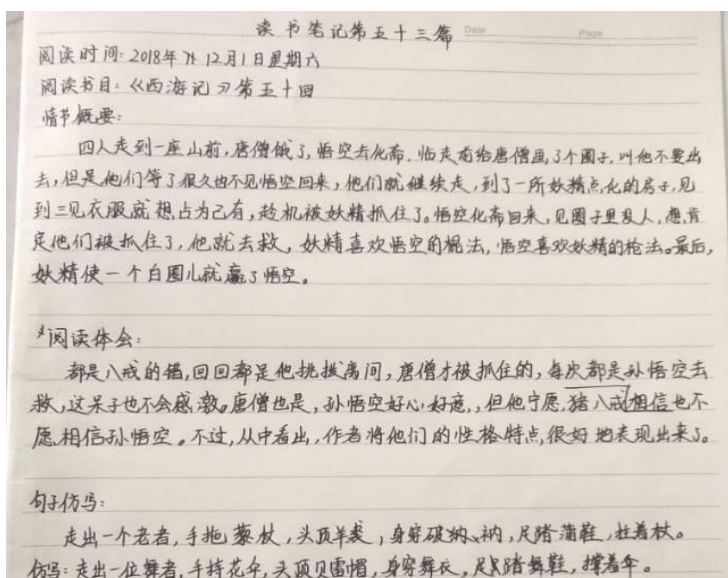 读书笔记第五十三篇 Date Page
阅读时间:2018年 12月1日星期六
阅读书目:《西游记》第五十回
情节概要:
四人走到一座山前,唐僧饿了,悟空去化斋,临走前给唐僧画了个圈子,叫他不要出
去,但是他们等了很久也不见悟空回来,他们就继续走,到了一所妖精点化的房子,见
到三见衣服就想占为己有,趁机被妖精抓住了。悟空化斋回来,见圈子里没人,想肯
定他们被抓住了,他就去救,妖精喜欢悟空的棍法,悟空喜欢妖精的枪法。最后,
妖精使一个白圈儿就赢了悟空。
阅读体会:
都是八戒的错,回回都是他挑拨离间,唐僧才被抓住的,每次都是孙悟空去
救,这呆子也不会感激。唐僧也是,孙悟空好心好意,但他宁愿猪八戒相信也不
愿相信孙悟空。不过,从中看出,作者将他们的性格特点很好地表现出来了。
句子仿写:
走出一个老者,手拖藜杖,头顶羊裘,身穿破纳衲,足踏蒲鞋,拄着杖。
仿写:走出一位舞者,手持花伞,头顶贝雷帽,身穿舞衣,足踏舞鞋,撑着伞。